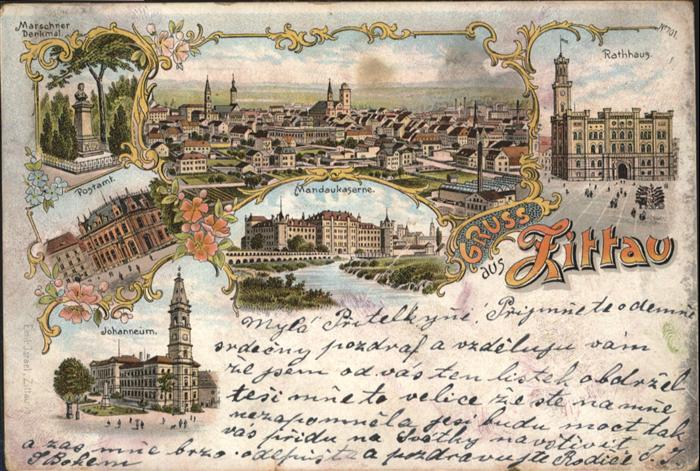 Marschner
Denkmal.
No 701.
Rathhaus.
Postamt.
Mandaukaserne.
GRUSS
aus
Zittau
Johanneum.
Mylá Přitelkyně! Prijmňete odemně
srdečny pozdraf a vzděluju vám
že jsem od vás ten listek obdržel
teši mňe to velice že ste na mně
nezapomněla jesi budu moct tak
vás přidu na Svátky navštivit
a zas mňe brzo odepište a pozdravujte Rodiče
S Bohem